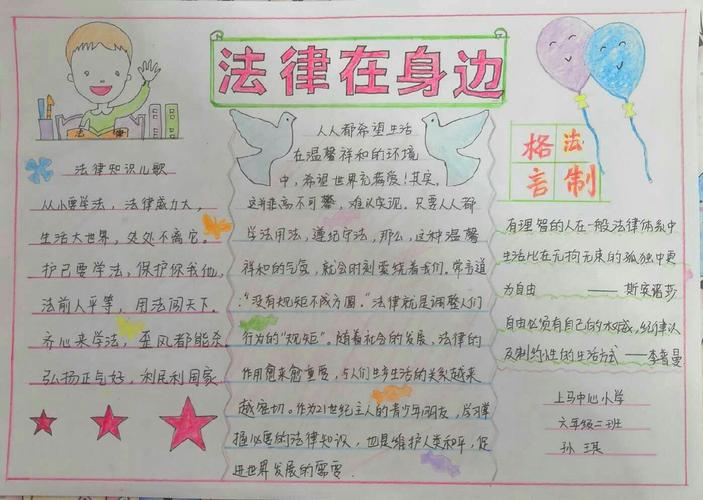 法律在身边
法律
法律知识儿歌
从小要学法，法律威力大，
生活大世界，处处不离它。
护己要学法，保护你我他，
法前人平等，用法闯天下。
齐心来学法，歪风都能杀
弘扬正与好，利民利国家
人人都希望生活
在温馨祥和的环境
中，希望世界充满爱！其实，
这并非高不可攀，难以实现。只要人人都
学法用法，遵纪守法，那么，这种温馨
祥和的气氛，就会时刻萦绕着我们。常言道
："没有规矩不成方圆。"法律就是调整人们
行为的"规矩"。随着社会的发展，法律的
作用愈来愈重要，与人们生步生活的关系越来
越密切。作为21世纪主人的青少年朋友，学习掌
握必要的法律知识，也是维护人类和平，促
进世界发展的需要
格法
言制
有理智的人在一般法律体系中
生活比在无拘无束的孤独中更
为自由 ——斯宾诺莎
自由必须有自己的，纪律以
及制约性的生活方式 ——李普曼
上马中心小学
六年级二班
孙琪